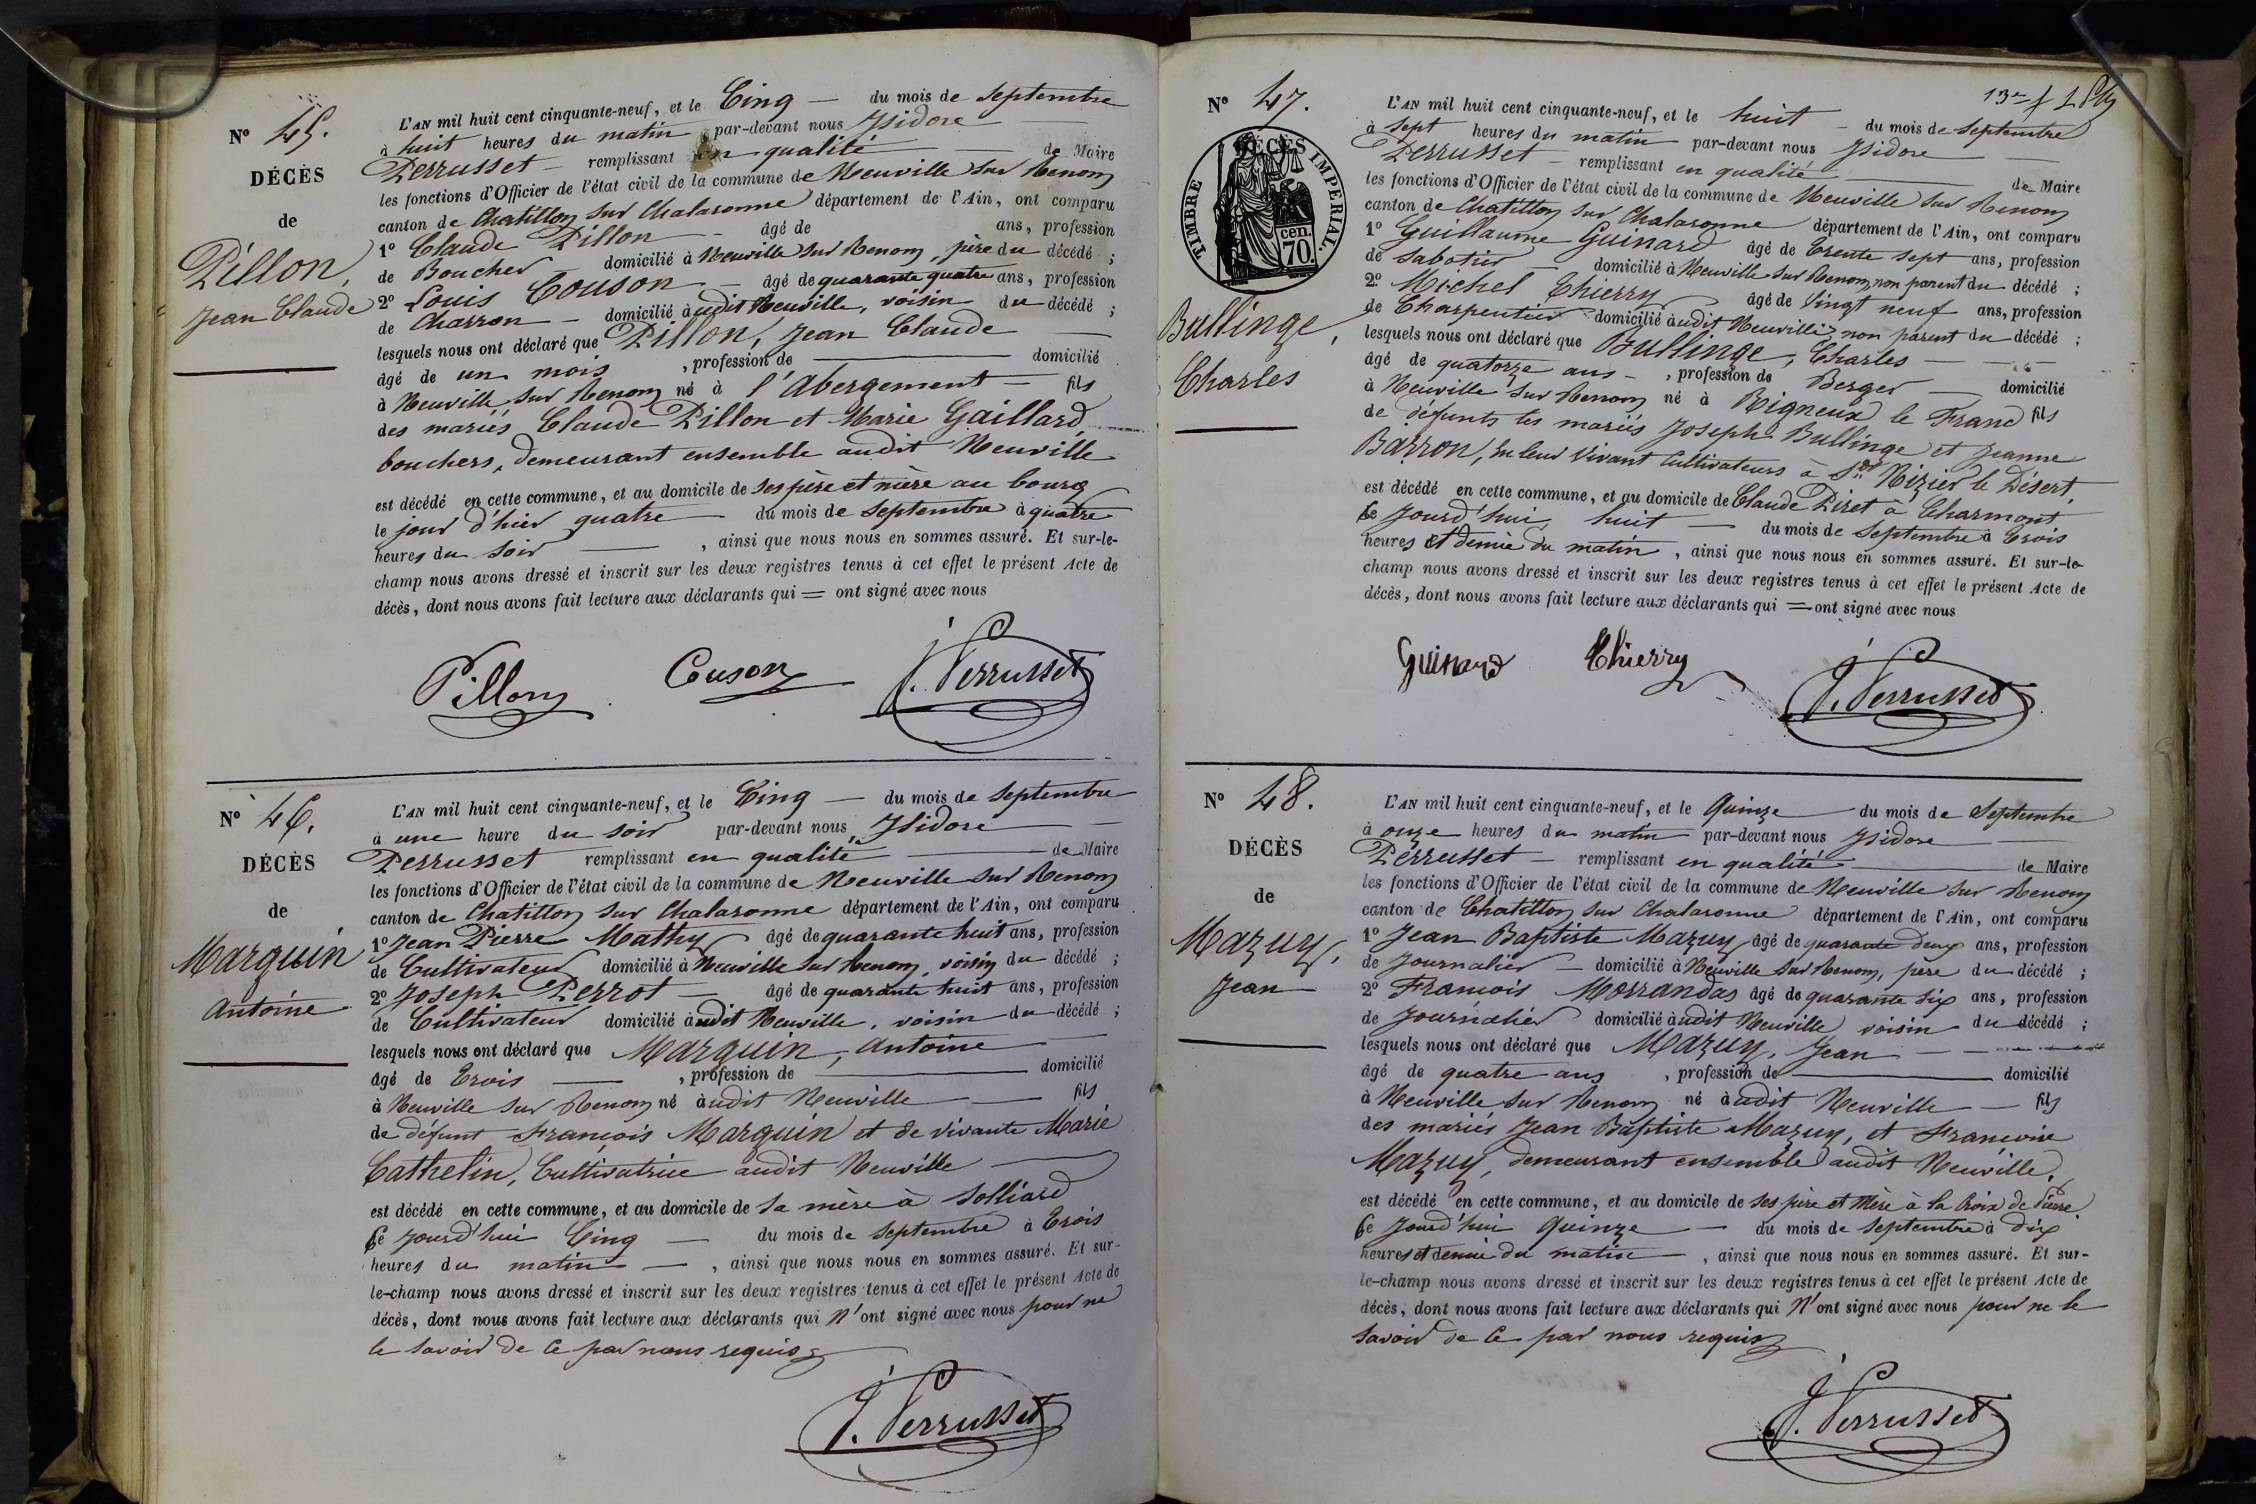 N° 45.
DÉCÈS
de
Pillon,
Jean Claude
L'AN mil huit cent cinquante-neuf, et le Cinq — du mois de Septembre
à huit heures du matin par-devant nous Isidore
Perrusset — remplissant en qualité — de Maire
les fonctions d'Officier de l'état civil de la commune de Neuville sur Renom
canton de Chatillon sur Chalaronne département de l'Ain, ont comparu
1° Claude Pillon — âgé de ans, profession
de Boucher domicilié à Neuville sur Renom, père du décédé ;
2° Louis Couson — âgé de quarante quatre ans, profession
de Charron — domicilié audit Neuville, voisin du décédé ;
lesquels nous ont déclaré que Pillon, Jean Claude —
âgé de un mois , profession de — domicilié
à Neuville sur Renom né à l'Abergement — fils
des mariés Claude Pillon et Marie Gaillard,
bouchers, demeurant ensemble audit Neuville
est décédé en cette commune, et au domicile de ses père et mère au bourg
le jour d'hier quatre — du mois de Septembre à quatre
heures du soir — , ainsi que nous nous en sommes assuré. Et sur-le-
champ nous avons dressé et inscrit sur les deux registres tenus à cet effet le présent Acte de
décès, dont nous avons fait lecture aux déclarants qui = ont signé avec nous
Pillon Couson J. Perrusset
N° 46.
DÉCÈS
de
Marguin
Antoine
L'AN mil huit cent cinquante-neuf, et le Cinq — du mois de Septembre
à une heure du soir par-devant nous Isidore —
Perrusset remplissant en qualité — de Maire
les fonctions d'Officier de l'état civil de la commune de Neuville sur Renom
canton de Chatillon sur Chalaronne département de l'Ain, ont comparu
1° Jean Pierre Mathy âgé de quarante huit ans, profession
de Cultivateur domicilié à Neuville sur Renom, voisin du décédé ;
2° Joseph Perrot — âgé de quarante huit ans, profession
de Cultivateur domicilié audit Neuville, voisin du décédé ;
lesquels nous ont déclaré que Marguin, Antoine —
âgé de Trois — , profession de — domicilié
à Neuville sur Renom né audit Neuville — fils
de défunt François Marguin et de vivante Marie
Cathelin, Cultivatrice audit Neuville —
est décédé en cette commune, et au domicile de sa mère à Solliard
Ce jourd'hui Cinq — du mois de Septembre à Trois
heures du matin — , ainsi que nous nous en sommes assuré. Et sur-
le-champ nous avons dressé et inscrit sur les deux registres tenus à cet effet le présent Acte de
décès, dont nous avons fait lecture aux déclarants qui n'ont signé avec nous pour ne
le savoir de ce par nous requis
J. Perrusset
13e f
N° 47.
TIMBRE IMPÉRIAL.
cen. 70.
DÉCÈS
Bullinge,
Charles
L'AN mil huit cent cinquante-neuf, et le huit — du mois de Septembre
à sept heures du matin par-devant nous Isidore —
Perrusset — remplissant en qualité — de Maire
les fonctions d'Officier de l'état civil de la commune de Neuville sur Renom
canton de Chatillon sur Chalaronne département de l'Ain, ont comparu
1° Guillaume Guinard âgé de Trente sept ans, profession
de Sabotier — domicilié à Neuville sur Renom, non parent du décédé ;
2° Michel Thierry âgé de Vingt neuf ans, profession
de Charpentier domicilié audit Neuville, non parent du décédé ;
lesquels nous ont déclaré que Bullinge, Charles —
âgé de quatorze ans — , profession de Berger — domicilié
à Neuville sur Renom né à Rigneux le Franc fils
de défunts les mariés Joseph Bullinge et Jeanne
Barron, en leur vivant Cultivateurs à St Nizier le Désert,
est décédé en cette commune, et au domicile de Claude Piret à Charmont
Ce jourd'hui huit — du mois de Septembre à Trois
heures et demie du matin , ainsi que nous nous en sommes assuré. Et sur-le-
champ nous avons dressé et inscrit sur les deux registres tenus à cet effet le présent Acte de
décès, dont nous avons fait lecture aux déclarants qui = ont signé avec nous
Guinard Thierry J. Perrusset
N° 48.
DÉCÈS
de
Mazuy,
Jean
L'AN mil huit cent cinquante-neuf, et le Quinze — du mois de Septembre
à onze heures du matin par-devant nous Isidore —
Perrusset — remplissant en qualité — de Maire
les fonctions d'Officier de l'état civil de la commune de Neuville sur Renom
canton de Chatillon sur Chalaronne département de l'Ain, ont comparu
1° Jean Baptiste Mazuy âgé de quarante deux ans, profession
de Journalier — domicilié à Neuville sur Renom, père du décédé ;
2° François Morrandas âgé de quarante six ans, profession
de Journalier domicilié audit Neuville voisin du décédé ;
lesquels nous ont déclaré que Mazuy, Jean —
âgé de quatre ans , profession de — domicilié
à Neuville sur Renom né audit Neuville — fils
des mariés Jean Baptiste Mazuy, et Françoise
Mazuy, demeurant ensemble audit Neuville,
est décédé en cette commune, et au domicile de ses père et Mère à la Croix de Pierre
Ce jourd'hui Quinze — du mois de Septembre à dix
heures et demie du matin — , ainsi que nous nous en sommes assuré. Et sur-
le-champ nous avons dressé et inscrit sur les deux registres tenus à cet effet le présent Acte de
décès, dont nous avons fait lecture aux déclarants qui N'ont signé avec nous pour ne le
savoir de ce par nous requis
J. Perrusset